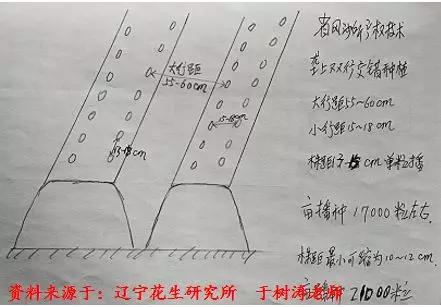 大行距
55-60cm
15-18cm
13-15cm
垄上双行交错种植
大行距55~60cm
小行距15~18cm
株距13-15cm单粒播
亩播种17000粒左右.
株距最小可缩为10~12cm.
21000粒
资料来源于：辽宁花生研究所 于树涛老师